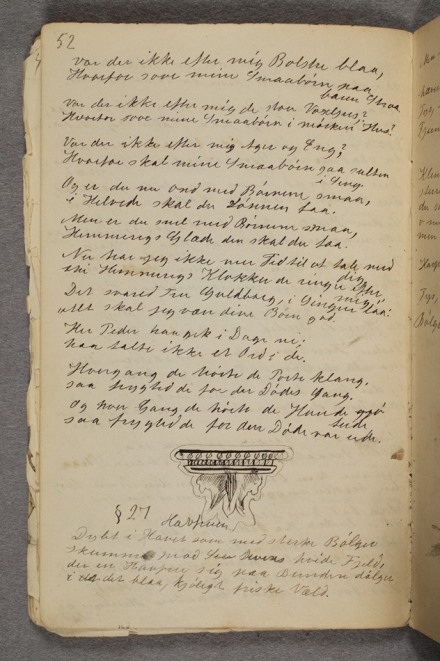 52
var der ikke efter mig Bolstre blaa,
Hvorfor sove mine Smaabörn paa
baun Straa
var der ikke efter mig de store Voxlius?
Hvorfor sove mine Smaabörn i mörken Hus?
Var der ikke efter mig Ager og Eng?
Hvorfor skal mine Smaabörn gaa sulten
i Seng
Og er du nu ond mod Börnene smaa,
i Helvede skal du Lönnen faa.
Men er du mild mod Börnene smaa,
Himmerigs Glæde den skal du faa.
Nu har jeg ikke mer Tid til at tale med
dig
thi Himmerigs Klokker de ringe efter
mig!
Det svared Fru Guldborg, i Gingen laa:
alt skal jeg være dine Börn god.
Her Peder han gik i Dage ni:
han talte ikke et Ord i de.
Hvergang de hörte de Porte klang,
saa frygtede de for den Dödes Gang.
Og hver Gang de hörte de Hunde gjö
saa frygtede de for den Döde var ude.
§ 27
Havfruen,
Dybt i Havet som med sterke Bölger
skummer mod hvide Fjeld,
der en Havfru sig paa Bunden dölger
i det blaa, kjöligt friske Væld.